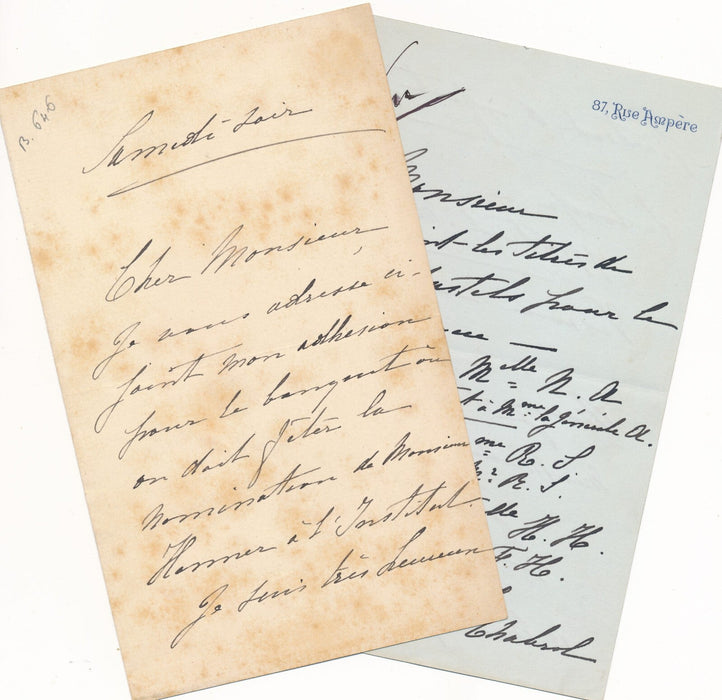 B. 646
Samedi soir
Cher Monsieur,
Je vous adresse ci-
joint mon adhesion
pour le banquet où
on doit fêter la
nomination de Monsieur
Henner à l'Institut.
Je suis très heureux
87, Rue Ampère
Monsieur
les titres de
pour le
Mlle N. A
à Mme la Générale A.
me R. S
R. S.
lle H. H.
F. H.
Chabrol